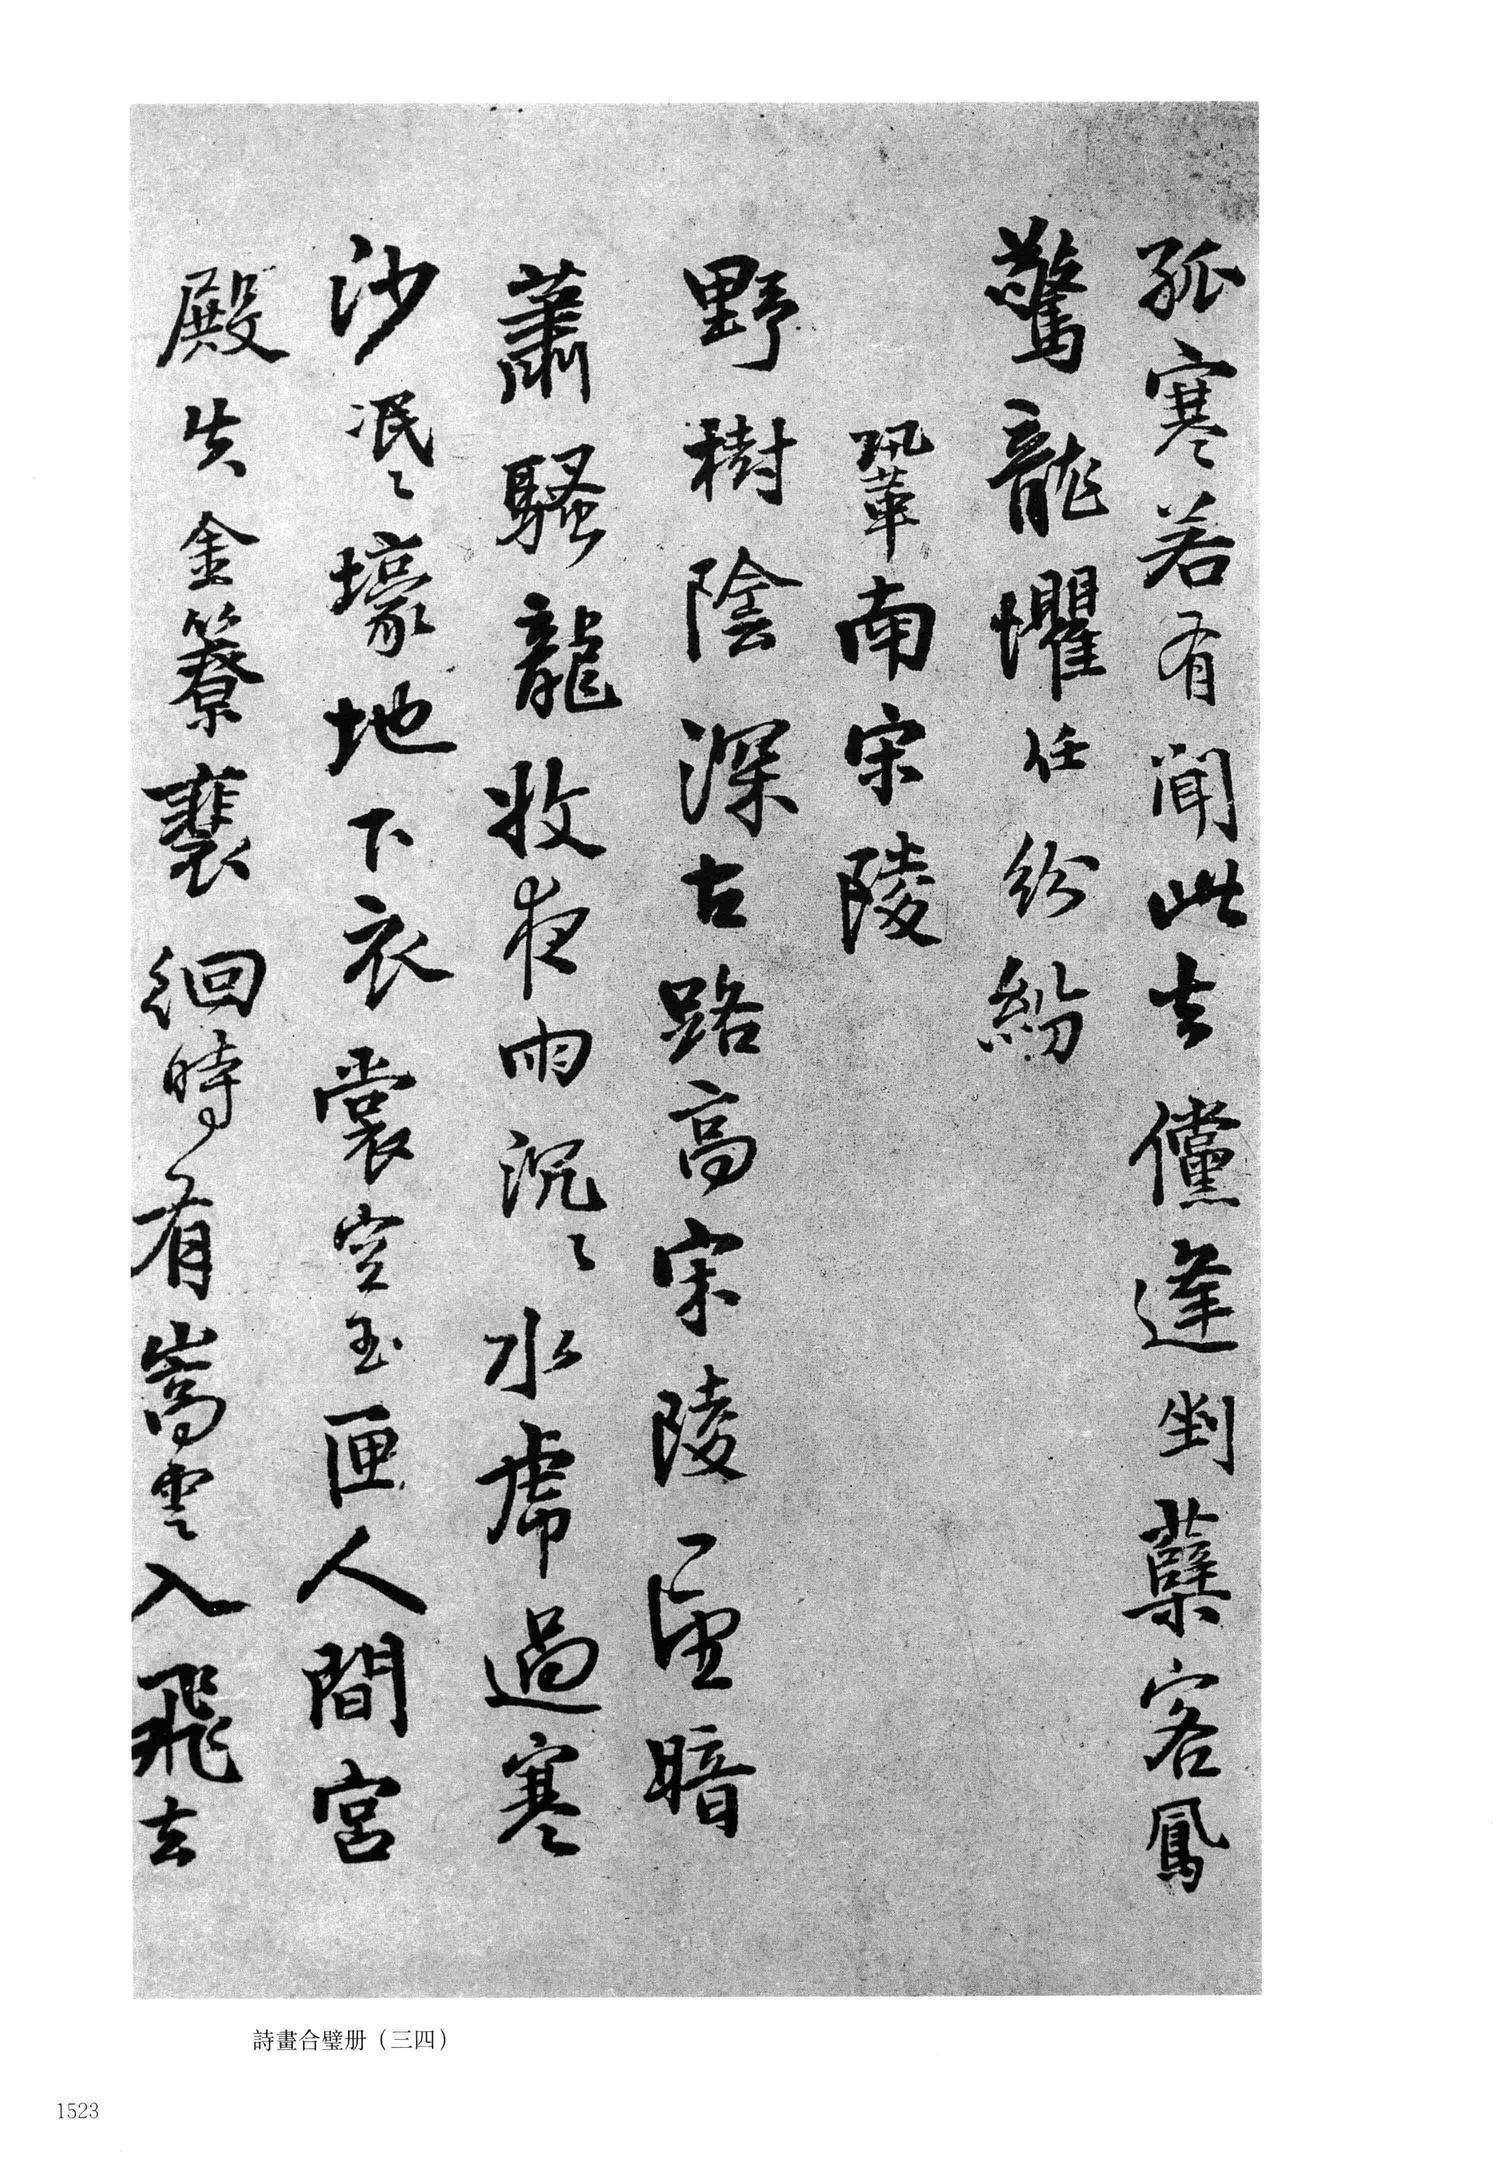 孤寒若有聞此去儻逢剉蘖客鳳
驚龍懼任紛紛
鞏南宋陵
野樹陰深古路高宋陵暗
蕭騷龍收夜雨沉〻水虎過寒
沙泯〻壕地下衣裳空玉匣人間宮
殿失金簝裴徊時有嵩雲入飛去
詩畫合璧册（三四）
1523